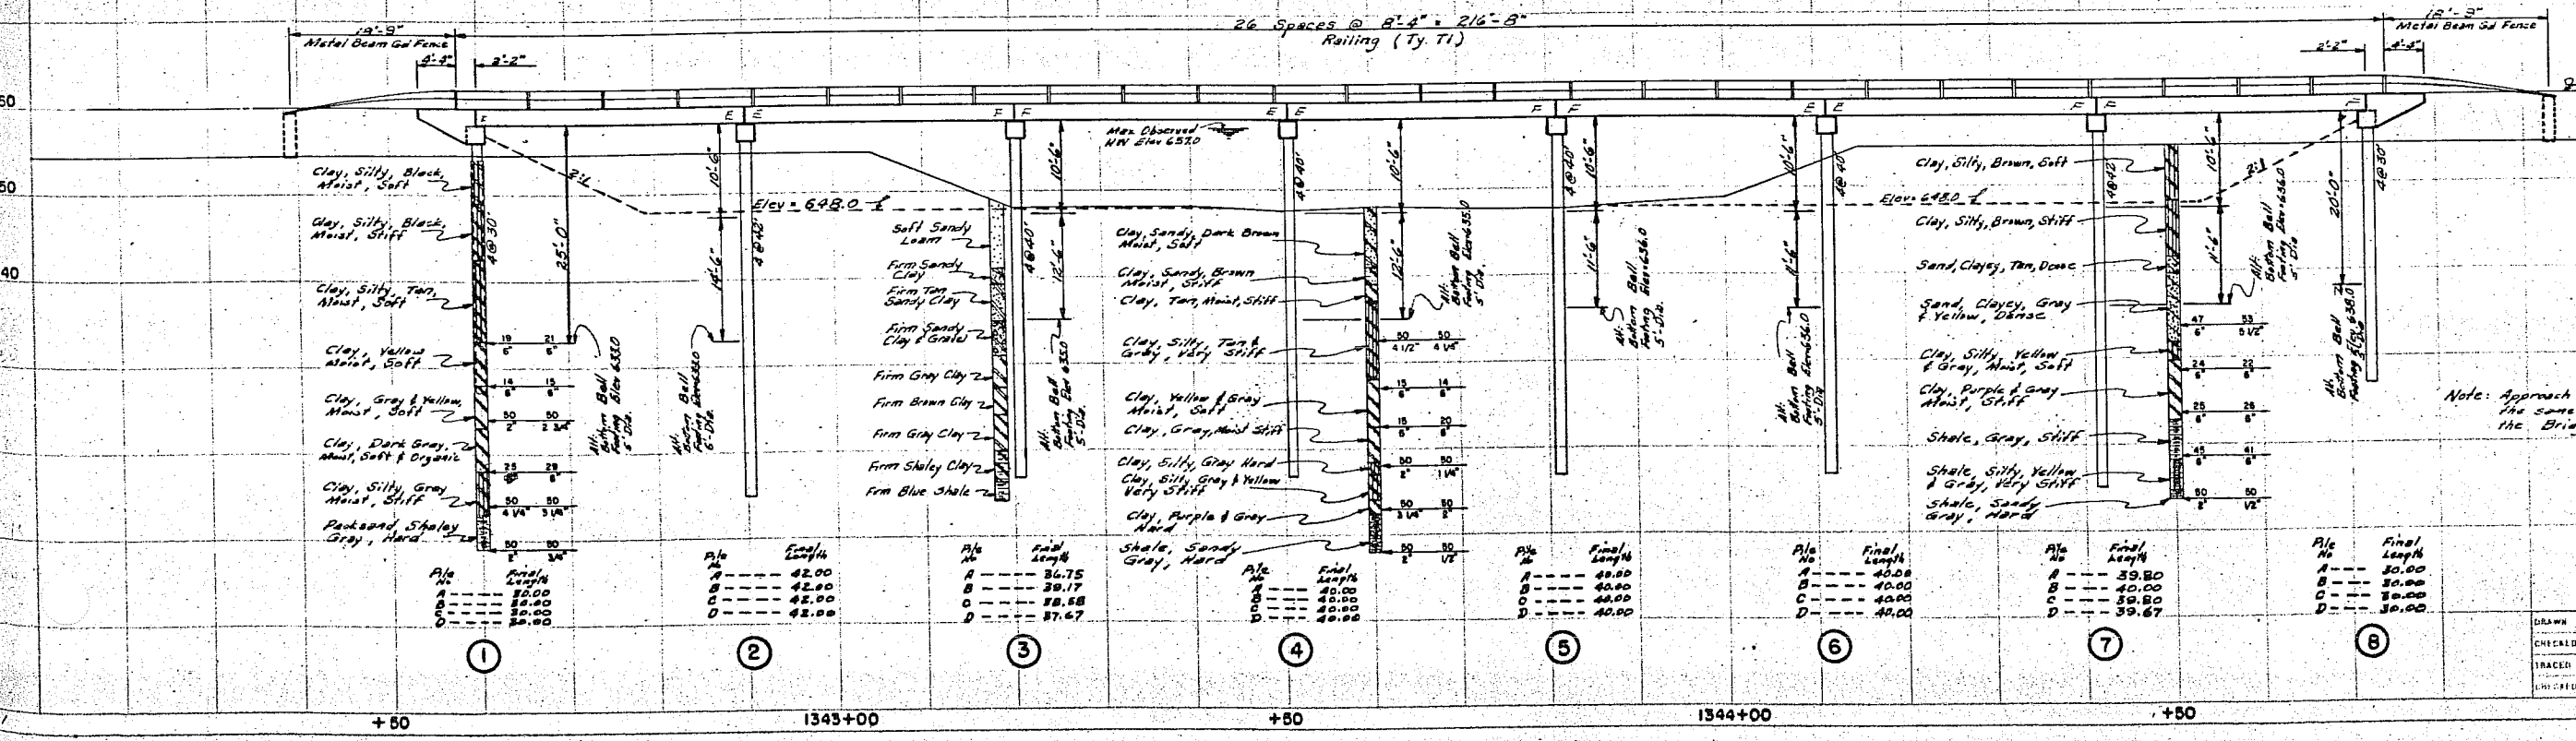 26 Spaces @ 8'-4" = 216'-8"
Railing (Ty. T1)
Metal Beam Gd Fence
4'-4"
2'-2"
Metal Beam Gd Fence
2'-2"
4'-4"
60
50
40
E
E E
F F
E E
F F
E E
F F
F
Max Observed
HW Elev 657.0
Elev = 648.0
Elev = 648.0
2:1
2:1
Clay, Silty, Black,
Moist, Soft
Clay, Silty, Black,
Moist, Stiff
Clay, Silty, Tan,
Moist, Soft
Clay, Yellow
Moist, Soft
Clay, Gray & Yellow,
Moist, Soft
Clay, Dark Gray,
Moist, Soft & Organic
Clay, Silty, Gray
Moist, Stiff
Packsand, Shaley
Gray, Hard
4@30'
25'-0"
19 21
6" 6"
14 15
6" 6"
50 50
2" 2 3/4"
25 29
6" 6"
50 50
4 1/4" 3 1/4"
50 50
2" 3/4"
Alt.
Bottom Bell
Footing Elev 633.0
5' Dia.
10'-6"
14'-6"
4@42'
Alt.
Bottom Bell
Footing Elev 633.0
6' Dia.
Soft Sandy
Loam
Firm Sandy
Clay
Firm Tan
Sandy Clay
Firm Sandy
Clay & Gravel
Firm Gray Clay
Firm Brown Clay
Firm Gray Clay
Firm Shaley Clay
Firm Blue Shale
4@40'
10'-6"
12'-6"
Alt.
Bottom Bell
Footing Elev 635.0
5' Dia.
Clay, Sandy, Dark Brown
Moist, Soft
Clay, Sandy, Brown
Moist, Stiff
Clay, Tan, Moist, Stiff
Clay, Silty, Tan &
Gray, Very Stiff
Clay, Yellow & Gray
Moist, Soft
Clay, Gray, Moist Stiff
Clay, Silty, Gray Hard
Clay, Silty Gray & Yellow
Very Stiff
Clay, Purple & Gray
Hard
Shale, Sandy
Gray, Hard
4@40'
10'-6"
12'-6"
Alt.
Bottom Bell
Footing Elev 635.0
5' Dia.
50 50
4 1/2" 4 1/4"
15 14
6" 6"
15 20
6" 6"
50 50
2" 1 1/4"
50 50
3 1/4" 2"
50 50
2" 1/2"
4@40'
10'-6"
11'-6"
Alt.
Bottom Bell
Footing Elev 636.0
5' Dia.
10'-6"
11'-6"
4@40'
Alt.
Bottom Bell
Footing Elev 636.0
5' Dia.
Clay, Silty, Brown, Soft
Clay, Silty, Brown, Stiff
Sand, Clayey, Tan, Dense
Sand, Clayey, Gray
& Yellow, Dense
Clay, Silty, Yellow
& Gray, Moist, Soft
Clay, Purple & Gray
Moist, Stiff
Shale, Gray, Stiff
Shale, Silty, Yellow
& Gray, Very Stiff
Shale, Sandy
Gray, Hard
4@42'
10'-6"
11'-6"
Alt.
Bottom Bell
Footing Elev 636.0
5' Dia
47 53
6" 5 1/2"
24 22
6" 6"
25 26
6" 6"
45 41
6" 6"
50 50
2" 1/2"
20'-0"
4@30'
Alt.
Bottom Bell
Footing Elev. 638.0
Note: Approach
the same
the Bri
Pile No Final Length
A ---- 30.00
B ---- 30.00
C ---- 30.00
D ---- 30.00
Pile No Final Length
A ---- 42.00
B ---- 42.00
C ---- 42.00
D ---- 42.00
Pile No Final Length
A ---- 36.75
B ---- 39.17
C ---- 38.58
D ---- 37.67
Pile No Final Length
A ---- 40.00
B ---- 40.00
C ---- 40.00
D ---- 40.00
Pile No Final Length
A ---- 40.00
B ---- 40.00
C ---- 40.00
D ---- 40.00
Pile No Final Length
A ---- 40.00
B ---- 40.00
C ---- 40.00
D ---- 40.00
Pile No Final Length
A ---- 39.80
B ---- 40.00
C ---- 39.80
D ---- 39.67
Pile No Final Length
A ---- 30.00
B ---- 30.00
C ---- 30.00
D ---- 30.00
1 2 3 4 5 6 7 8
DRAWN
CHECKED
TRACED
CHECKED
+50 1343+00 +50 1344+00 +50